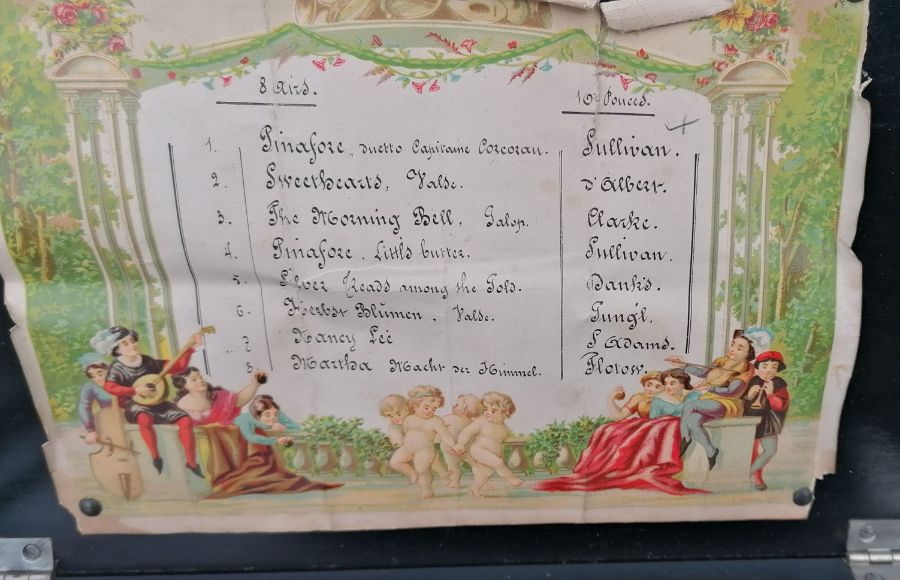 8 Airs.
10½ Pouces.
1. Pinafore, duetto Capitaine Corcoran. Sullivan.
2. Sweethearts, Valse. d'Albert.
3. The Morning Bell, Galop. Clarke.
4. Pinafore. Little butter. Sullivan.
5. Silver treads among the Gold. Danks.
6. Herbst Blumen, Valse. Gungl.
7 Nancy Lee S Adams.
8. Martha Macht der Himmel. Flotow.